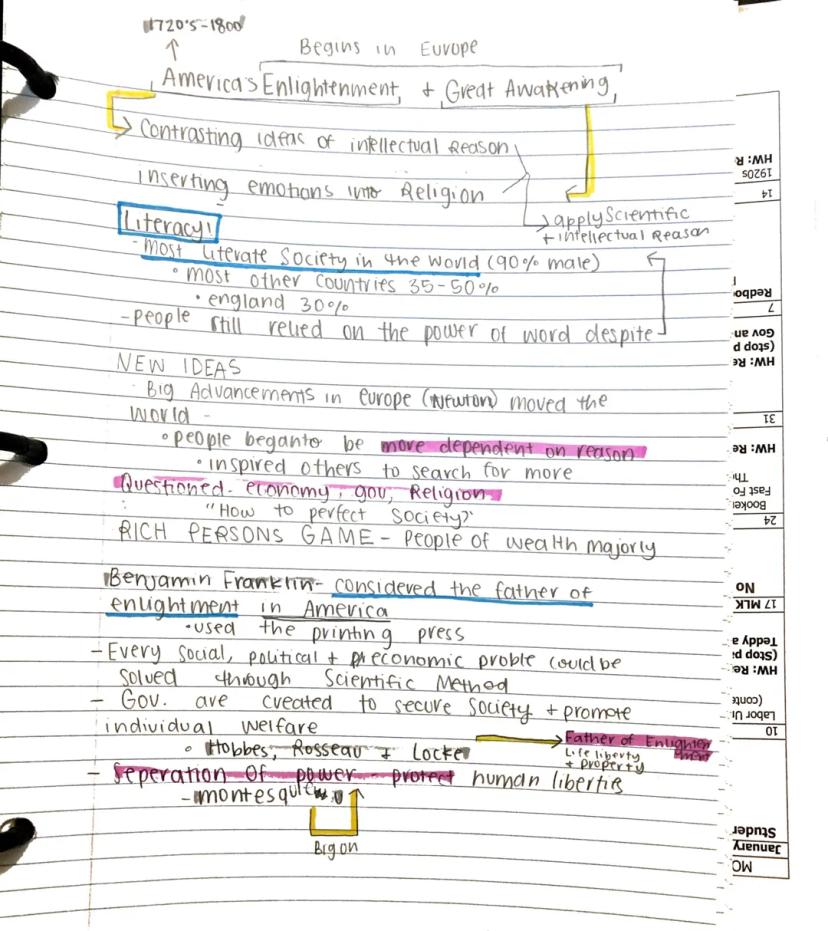 1720's-1800
Begins in Europe
America's Enlightenment + Great Awakening
Contrasting ideas of intellectual Reason
inserting emotions into Religion
apply Scientific
+ intellectual Reason
Literacy:
- most literate Society in the world (90% male)
• most other countries 35-50%
• england 30%
- people still relied on the power of word despite
NEW IDEAS
· Big Advancements in europe (Newton) moved the
world -
• people began to be more dependent on reason
• inspired others to search for more
Questioned - economy, gov, Religion
"How to perfect society?"
RICH PERSONS GAME - people of wealth majorly
Benjamin Franklin - considered the father of
enlightment in America
• used the printing press
- Every social, political + economic proble could be
solved through Scientific Method
- Gov. are created to secure society + promote
individual welfare
• Hobbes, Rosseau + Locke
Father of Enlighten
ment
Life liberty
+ property
- Seperation of power - protect human liberties
- montesquieu
Big on
MC
January
Studer
10
Labor Ur
(conti
HW: Re
(Stop pa
Teddy a
17 MLK
No
24
Bookel
Fast Fo
Th
HW: Re
31
HW: Re
(stop p
Gov an
7
Redbo
14
1920s
HW: R